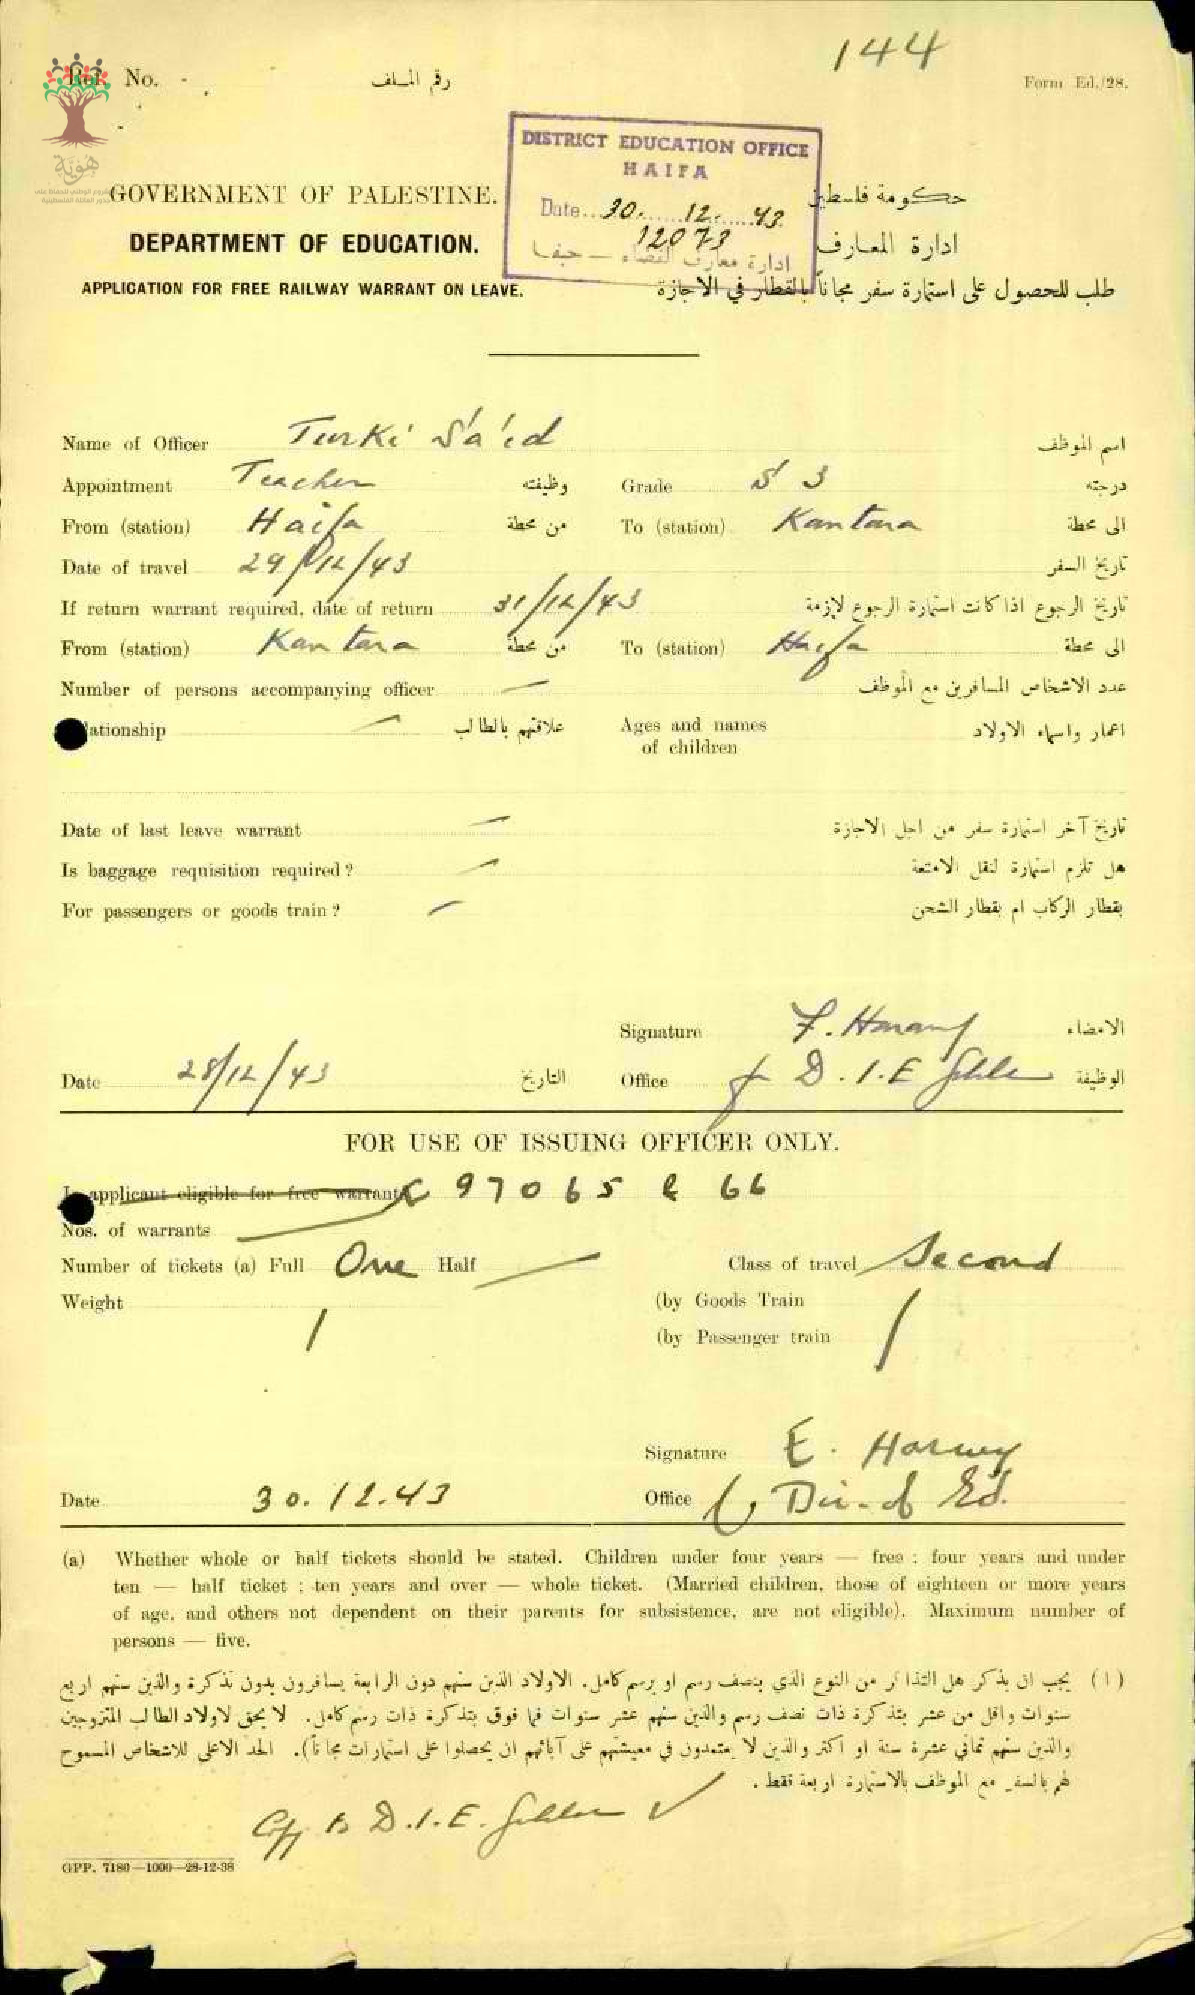 144
Ref. No. رقم الملف Form Ed./28.
هوية
DISTRICT EDUCATION OFFICE
HAIFA
Date... 30. 12. 43
12073
ادارة معارف القضاء — حيفا
GOVERNMENT OF PALESTINE. حكومة فلسطين
DEPARTMENT OF EDUCATION. ادارة المعارف
APPLICATION FOR FREE RAILWAY WARRANT ON LEAVE. طلب للحصول على استمارة سفر مجاناً بالقطار في الاجازة
Name of Officer Turki Sa'id اسم الموظف
Appointment Teacher وظيفته Grade S 3 درجته
From (station) Haifa من محطة To (station) Kantara الى محطة
Date of travel 29/12/43 تاريخ السفر
If return warrant required, date of return 31/12/43 تاريخ الرجوع اذا كانت استمارة الرجوع لازمة
From (station) Kantara من محطة To (station) Haifa الى محطة
Number of persons accompanying officer — عدد الاشخاص المسافرين مع الموظف
lationship — علاقتهم بالطالب Ages and names of children اعمار واسماء الاولاد
Date of last leave warrant — تاريخ آخر استمارة سفر من اجل الاجازة
Is baggage requisition required? — هل تلزم استمارة لنقل الامتعة
For passengers or goods train? — بقطار الركاب ام بقطار الشحن
Signature الامضاء
Date 28/12/43 التاريخ Office D.I.E. الوظيفة
FOR USE OF ISSUING OFFICER ONLY.
applicant eligible for free warrant C 97065 & 66
Nos. of warrants
Number of tickets (a) Full One Half — Class of travel Second
Weight (by Goods Train
(by Passenger train
Signature E. Harvey
Date 30.12.43 Office Dir. of Ed.
(a) Whether whole or half tickets should be stated. Children under four years — free; four years and under
ten — half ticket; ten years and over — whole ticket. (Married children, those of eighteen or more years
of age, and others not dependent on their parents for subsistence, are not eligible). Maximum number of
persons — five.
(ا) يجب ان يذكر هل التذاكر من النوع الذي بنصف رسم او برسم كامل. الاولاد الذين سنهم دون الرابعة يسافرون بدون تذكرة والذين سنهم اربع
سنوات واقل من عشر بتذكرة ذات نصف رسم والذين سنهم عشر سنوات فما فوق بتذكرة ذات رسم كامل. لا يحق لاولاد الطالب المتزوجين
والذين سنهم ثماني عشرة سنة او اكثر والذين لا يعتمدون في معيشتهم على آبائهم ان يحصلوا على استمارات مجاناً). الحد الاعلى للاشخاص المسموح
لهم بالسفر مع الموظف بالاستمارة اربعة فقط.
Copy to D.I.E.
GPP. 7180—1000—28-12-38